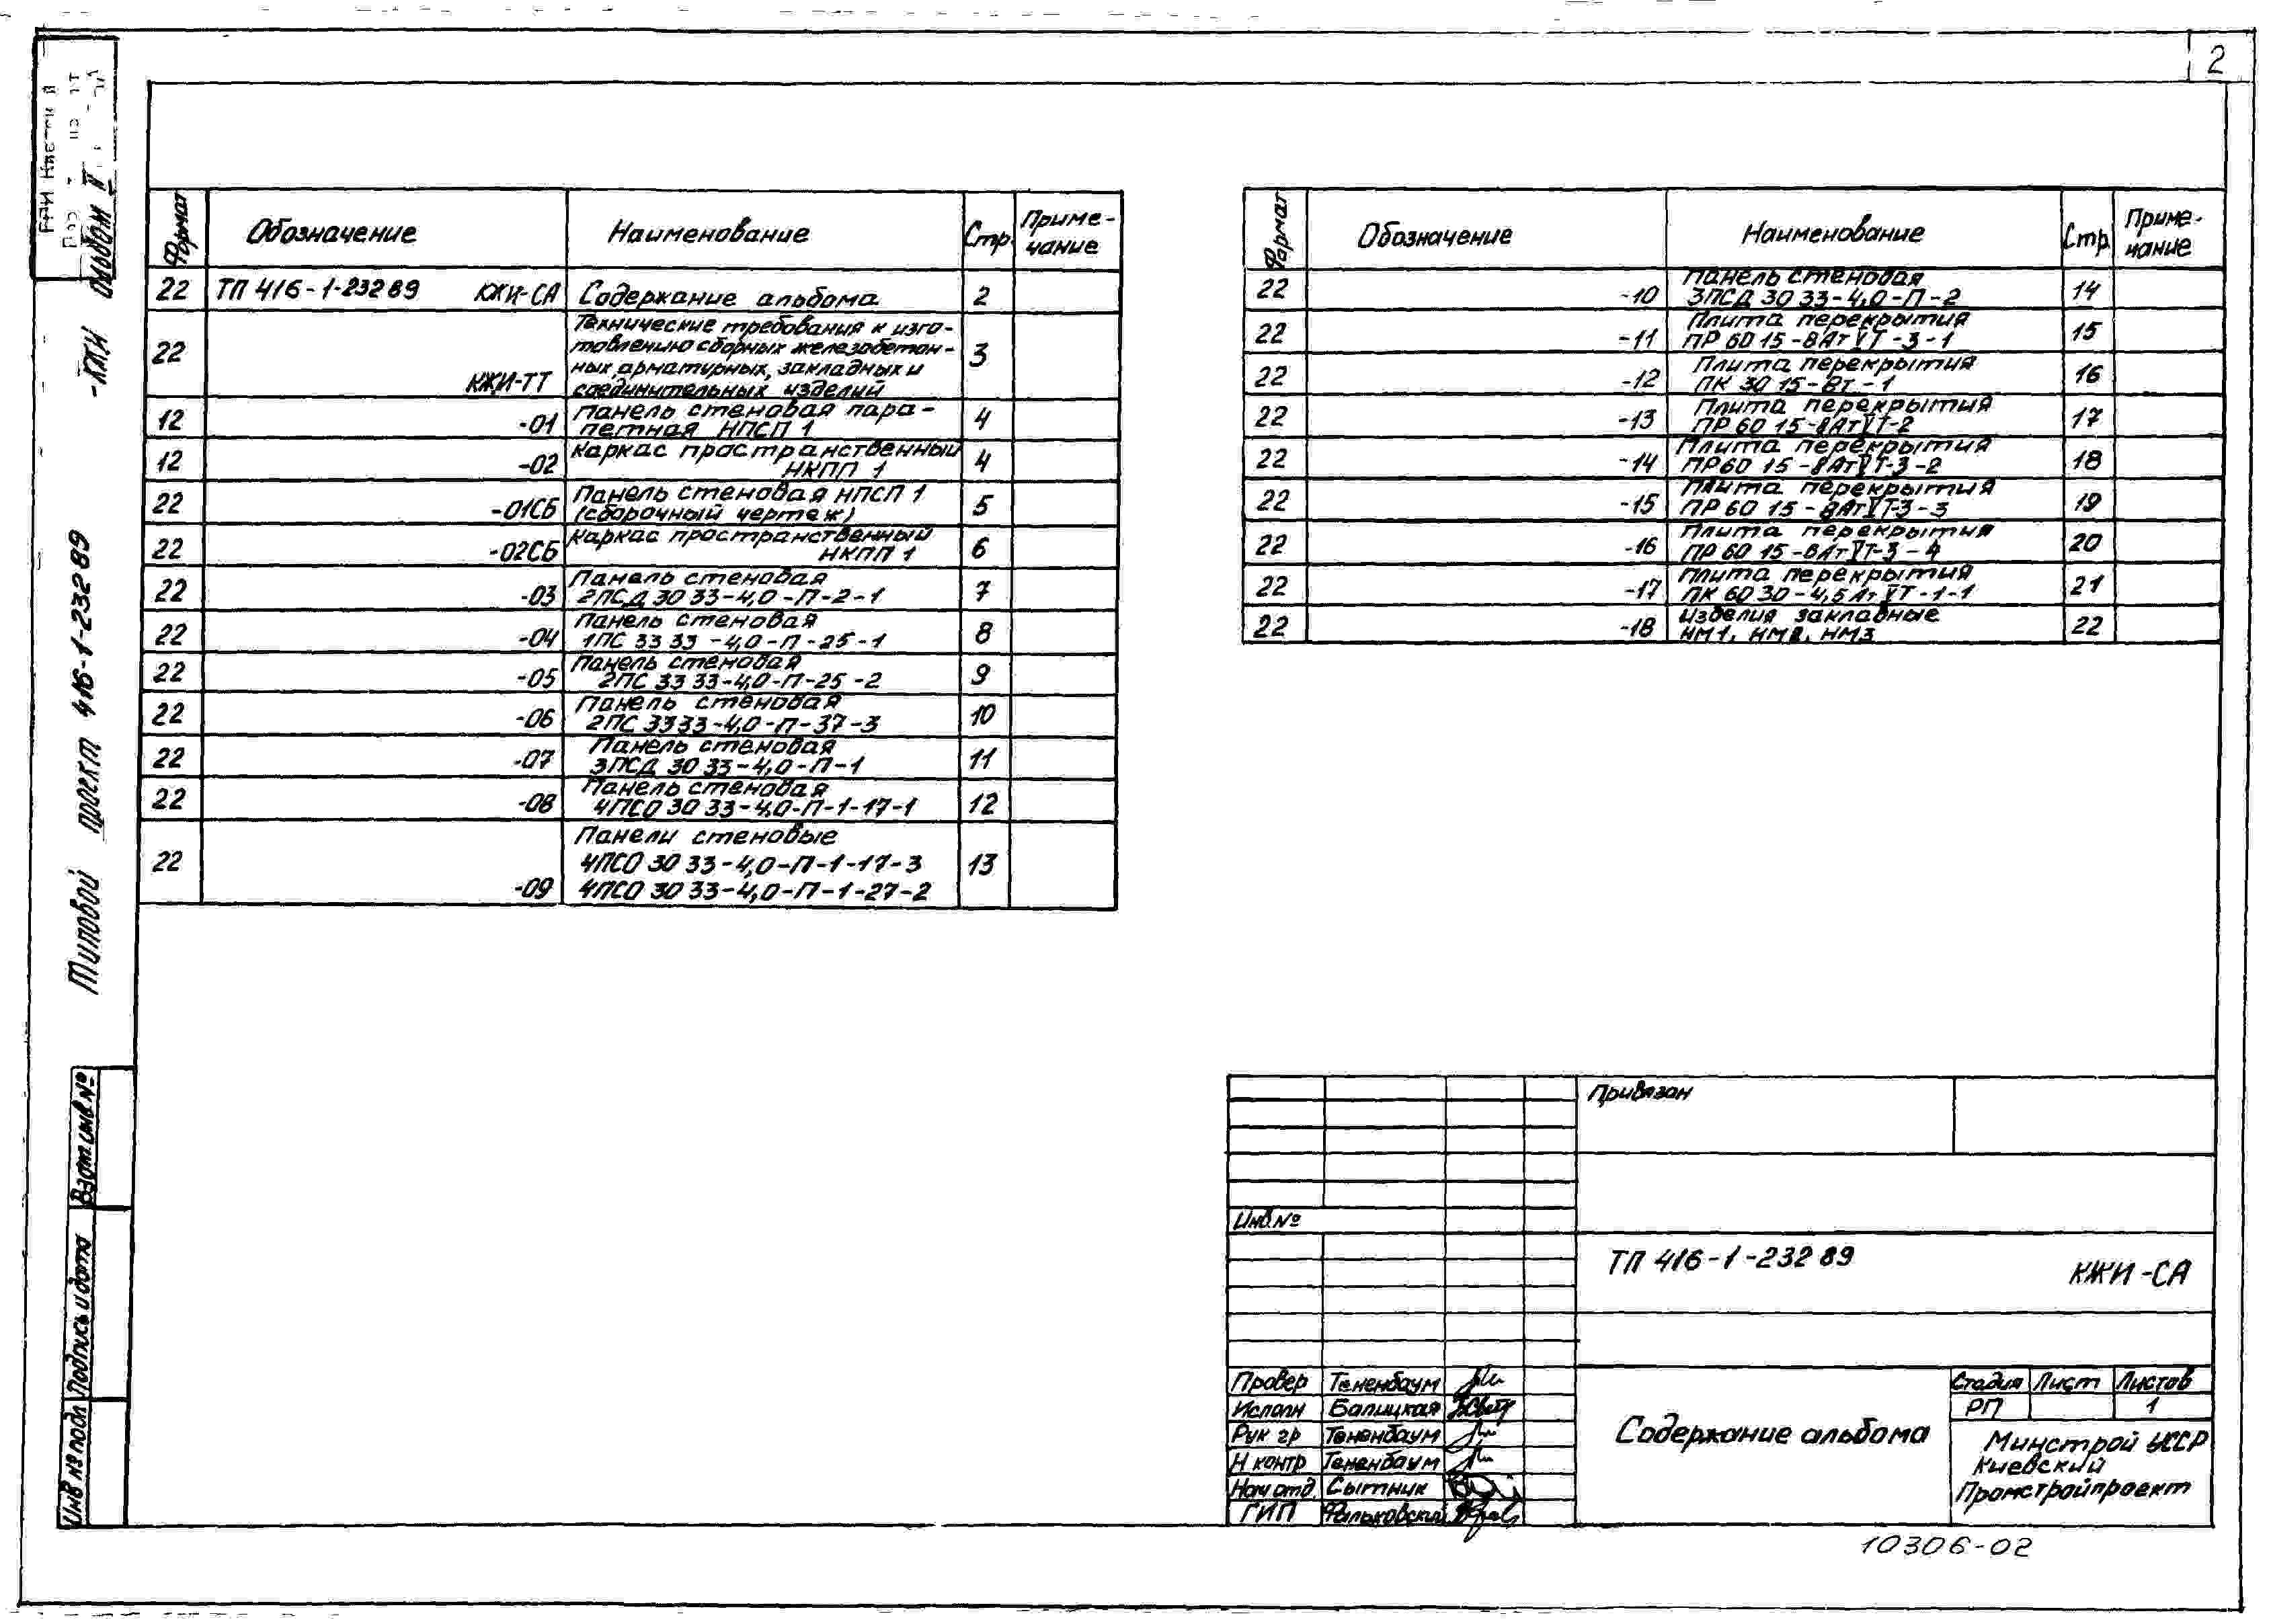 2
Альбом V
-КЖИ
Типовой проект 416-1-232 89
Формат
Обозначение
Наименование
Стр.
Приме-
чание
22 ТП 416-1-232 89 КЖИ-СА Содержание альбома 2
Технические требования к изго-
товлению сборных железобетон-
22 3
ных, арматурных, закладных и
КЖИ-ТТ соединительных изделий
12 Панель стеновая пара- 4
-01 петная НПСП 1
12 Каркас пространственный 4
-02 НКПП 1
22 Панель стеновая НПСП 1 5
-01СБ (сборочный чертеж)
22 Каркас пространственный 6
-02СБ НКПП 1
22 Панель стеновая 7
-03 2ПСД 30 33-4,0-П-2-1
22 Панель стеновая 8
-04 1ПС 33 33-4,0-П-25-1
22 Панель стеновая 9
-05 2ПС 33 33-4,0-П-25-2
22 Панель стеновая 10
-06 2ПС 33 33-4,0-П-37-3
22 Панель стеновая 11
-07 3ПСД 30 33-4,0-П-1
22 Панель стеновая 12
-08 4ПСО 30 33-4,0-П-1-17-1
Панели стеновые
22 4ПСО 30 33-4,0-П-1-17-3 13
-09 4ПСО 30 33-4,0-П-1-27-2
Формат
Обозначение
Наименование
Стр.
Приме-
чание
22 Панель стеновая 14
-10 3ПСД 30 33-4,0-П-2
22 Плита перекрытия 15
-11 ПР 60 15-8АтVТ-3-1
22 Плита перекрытия 16
-12 ПК 30 15-8т-1
22 Плита перекрытия 17
-13 ПР 60 15-8АтVТ-2
22 Плита перекрытия 18
-14 ПР 60 15-8АтVТ-3-2
22 Плита перекрытия 19
-15 ПР 60 15-8АтVТ-3-3
22 Плита перекрытия 20
-16 ПР 60 15-8АтVТ-3-4
22 Плита перекрытия 21
-17 ПК 60 30-4,5АтVТ-1-1
22 Изделия закладные 22
-18 НМ1, НМ2, НМ3
Взам.инв №
Подпись и дата
Инв № подл
Привязан
Инв.№
ТП 416-1-232 89
КЖИ-СА
Провер Тененбаум
Исполн Балицкая
Рук гр Тененбаум
Н контр Тененбаум
Нач отд Сытник
ГИП Фальковский
Содержание альбома
Стадия Лист Листов
РП 1
Минстрой УССР
Киевский
Промстройпроект
10306-02